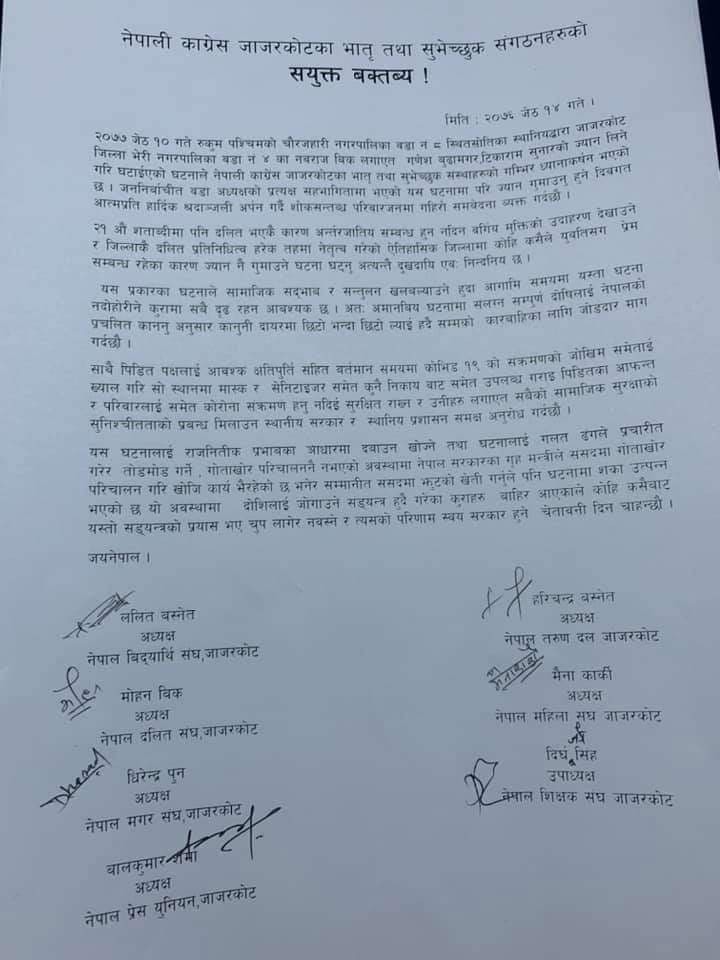 नेपाली काग्रेस जाजरकोटका भातृ तथा सुभेच्छुक संगठनहरुको
सयुक्त बक्तब्य !
मिति : २०७६ जेठ १४ गते ।
२०७७ जेठ १० गते रुकुम पश्चिमको चौरजहारी नगरपालिका बडा न ८ स्थितसोतिका स्थानियद्वारा जाजरकोट
जिल्ला भेरी नगरपालिका बडा न ४ का नबराज बिक लगाएत गणेश बुढामगर,टिकाराम सुनारको ज्यान लिने
गरि घटाईएको घटनाले नेपाली काग्रेस जाजरकोटका भातृ तथा सुभेच्छुक संस्थाहरुको गम्भिर ध्यानाकर्षन भएको
छ । जननिर्बाचीत बडा अध्यक्षको प्रत्यक्ष सहभागितामा भएको यस घटनामा परि ज्यान गुमाउनु हुने दिबगत
आत्मप्रति हार्दिक श्रदाञ्जली अर्पन गर्दै शोकसन्तब्ध परिबारजनमा गहिरो समबेदना ब्यक्त गर्दछौ ।
२१ औ शताब्दीमा पनि दलित भएकै कारण अर्न्तरजातिय सम्बन्ध हुन नदिन बर्गिय मुक्तिको उदाहरण देखाउने
र जिल्लाकै दलित प्रतिनिधित्व हरेक तहमा नेतृत्व गरेको ऐतिहासिक जिल्लामा कोहि कसैले युबतिसग प्रेम
सम्बन्ध रहेका कारण ज्यान नै गुमाउने घटना घट्नु अत्यन्तै दुखदायि एबः निन्दनिय छ ।
यस प्रकारका घटनाले सामाजिक सद्भाब र सन्तुलन खलबल्याउने हुदा आगामि समयमा यस्ता घटना
नदोहोरीने कुरामा सबै दृढ रहन आबश्यक छ । अतः अमानबिय घटनामा सलग्न सम्पुर्ण दोषिलाई नेपालको
प्रचलित कानुनु अनुसार कानुनी दायरमा छिटो भन्दा छिटो ल्याई हदै सम्मको कारबाहिका लागि जोडदार माग
गर्दछौ ।
साथै पिडित पक्षलाई आबश्क क्षतिपुर्ति सहित बर्तमान समयमा कोभिड १९ को सक्रमणको जोखिम समेताई
ख्याल गरि सो स्थानमा मास्क र सेनिटाइजर समेत कुनै निकाय बाट समेत उपलब्ध गराइ पिडितका आफन्त
र परिबारलाई समेत कोरोना संक्रमण हनु नदिई सुरक्षित राख्न र उनीहरु लगाएत सबैको सामाजिक सुरक्षाको
सुनिश्चीतताको प्रबन्ध मिलाउन स्थानीय सरकार र स्थानिय प्रशासन समक्ष अनुरोध गर्दछौ ।
यस घटनालाई राजनितीक प्रभाबका आधारमा दबाउन खोज्ने तथा घटनालाई गलत ढंगले प्रचारीत
गरेर तोडमोड गर्ने , गोताखोर परिचालननै नभएको अबस्थामा नेपाल सरकारका गृह मन्त्रीले ससदमा गोताखोर
परिचालन गरि खोजि कार्य भैरहेको छ भनेर सम्मानीत ससदमा झुटको खेती गर्नुले पनि घटनामा शका उत्पन्न
भएको छ यो अबस्थामा दोशिलाई जोगाउने सड्यन्त्र हुदै गरेका कुराहरु बाहिर आएकाले कोहि कसैबाट
यस्तो सड्यन्त्रको प्रयास भए चुप लागेर नबस्ने र त्यसको परिणाम स्वय सरकार हुने चेताबनी दिन चाहन्छौ ।
जयनेपाल ।
ललित बस्नेत
अध्यक्ष
नेपाल बिद्यार्थि संघ,जाजरकोट
मोहन बिक
अध्यक्ष
नेपाल दलित संघ,जाजरकोट
धिरेन्द्र पुन
अध्यक्ष
नेपाल मगर संघ,जाजरकोट
बालकुमार शर्मा
अध्यक्ष
नेपाल प्रेस युनियन,जाजरकोट
हरिचन्द्र बस्नेत
अध्यक्ष
नेपाल तरुण दल जाजरकोट
मैना कार्की
अध्यक्ष
नेपाल महिला संघ जाजरकोट
दिर्घ सिह
उपाध्यक्ष
नेपाल शिक्षक संघ जाजरकोट